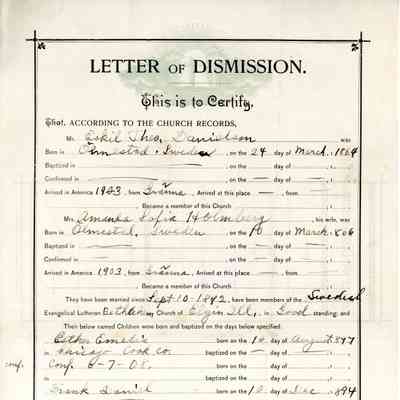 LETTER OF DISMISSION.
This is to Certify,
That, ACCORDING TO THE CHURCH RECORDS,
Mr. Eskil Theo. Danielson was
Born in Ölmestad, Sweden, on the 24 day of March, 1864
Baptized in — , on the — day of — , —
Confirmed in — , on the — day of — , —
Arrived in America 1903, from Gränna, Arrived at this place — , from
, Became a member of this Church
Mrs. Amanda Sofia Holmberg, his wife, was
Born in Ölmestad, Sweden on the 10 day of March,
Baptized in — , on the — day of — , —
Confirmed in — , on the — day of — , —
Arrived in America 1903, from Gränna, Arrived at this place — , from
, Became a member of this Church
They have been married since Sept 10-1892, have been members of the Swedish
Evangelical Lutheran Bethlehem, Church of Elgin Ill, in Good standing; and
Then below named Children were born and baptized on the days below specified:
Esther born on the 10 day of August
in Chicago Cook Co. baptized on the — day of
conf. Conf. 6-7-08. born on the day of
in baptized on the day of
Frank Daniel born on the 10 day of Dec, 1894